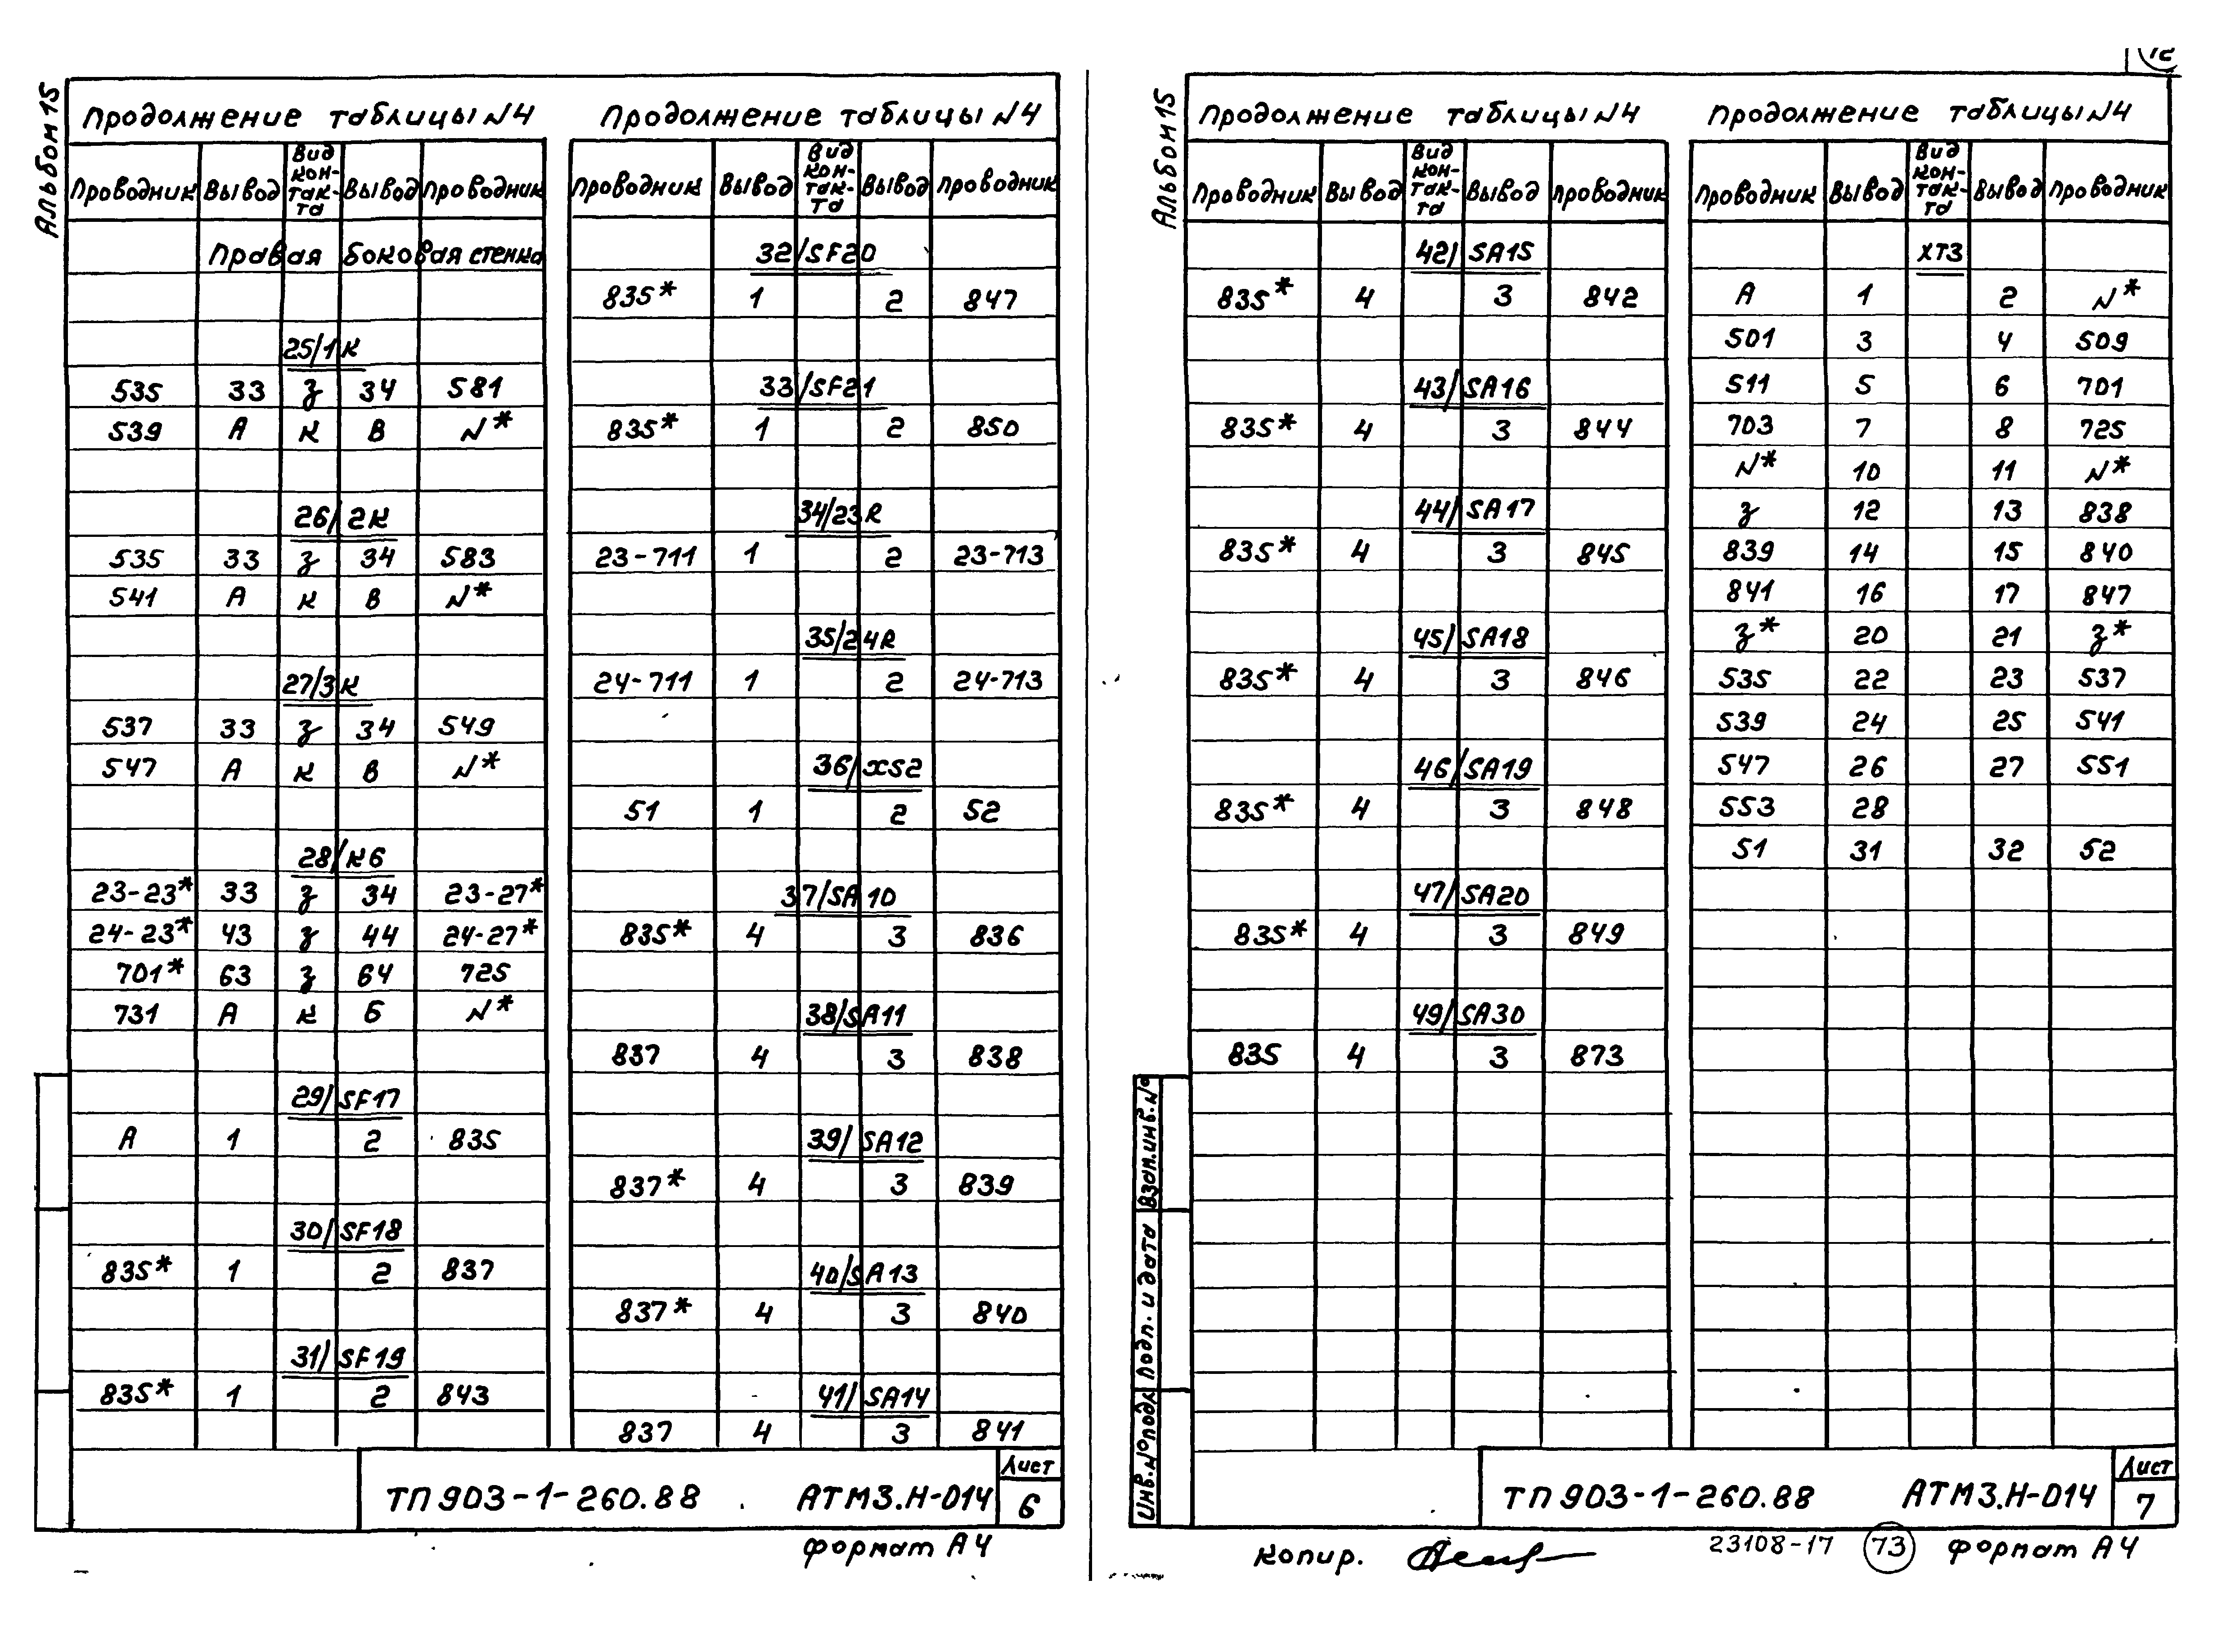 12
Альбом 15
Продолжение таблицы N4
Проводник Вывод Вид кон-так-та Вывод Проводник
Правая боковая стенка
25/1К
535 33 з 34 581
539 А К В N*
26/2К
535 33 з 34 583
541 А К В N*
27/3К
537 33 з 34 549
547 А К В N*
28/К6
23-23* 33 з 34 23-27*
24-23* 43 з 44 24-27*
701* 63 з 64 725
731 А К Б N*
29/SF17
А 1 2 835
30/SF18
835* 1 2 837
31/SF19
835* 1 2 843
Продолжение таблицы N4
Проводник Вывод Вид кон-так-та Вывод Проводник
32/SF20
835* 1 2 847
33/SF21
835* 1 2 850
34/23R
23-711 1 2 23-713
35/24R
24-711 1 2 24-713
36/XS2
51 1 2 52
37/SA10
835* 4 3 836
38/SA11
837 4 3 838
39/SA12
837* 4 3 839
40/SA13
837* 4 3 840
41/SA14
837 4 3 841
ТП 903-1-260.88 АТМ3.Н-014
Лист
6
Формат А4
Альбом 15
Продолжение таблицы N4
Проводник Вывод Вид кон-так-та Вывод Проводник
42/SA15
835* 4 3 842
43/SA16
835* 4 3 844
44/SA17
835* 4 3 845
45/SA18
835* 4 3 846
46/SA19
835* 4 3 848
47/SA20
835* 4 3 849
49/SA30
835 4 3 873
Продолжение таблицы N4
Проводник Вывод Вид кон-так-та Вывод Проводник
ХТ3
А 1 2 N*
501 3 4 509
511 5 6 701
703 7 8 725
N* 10 11 N*
з 12 13 838
839 14 15 840
841 16 17 847
з* 20 21 з*
535 22 23 537
539 24 25 541
547 26 27 551
553 28
51 31 32 52
Взам.инв.№
Подп. и дата
Инв.№подл
ТП 903-1-260.88 АТМ3.Н-014
Лист
7
Копир.
23108-17 73 Формат А4